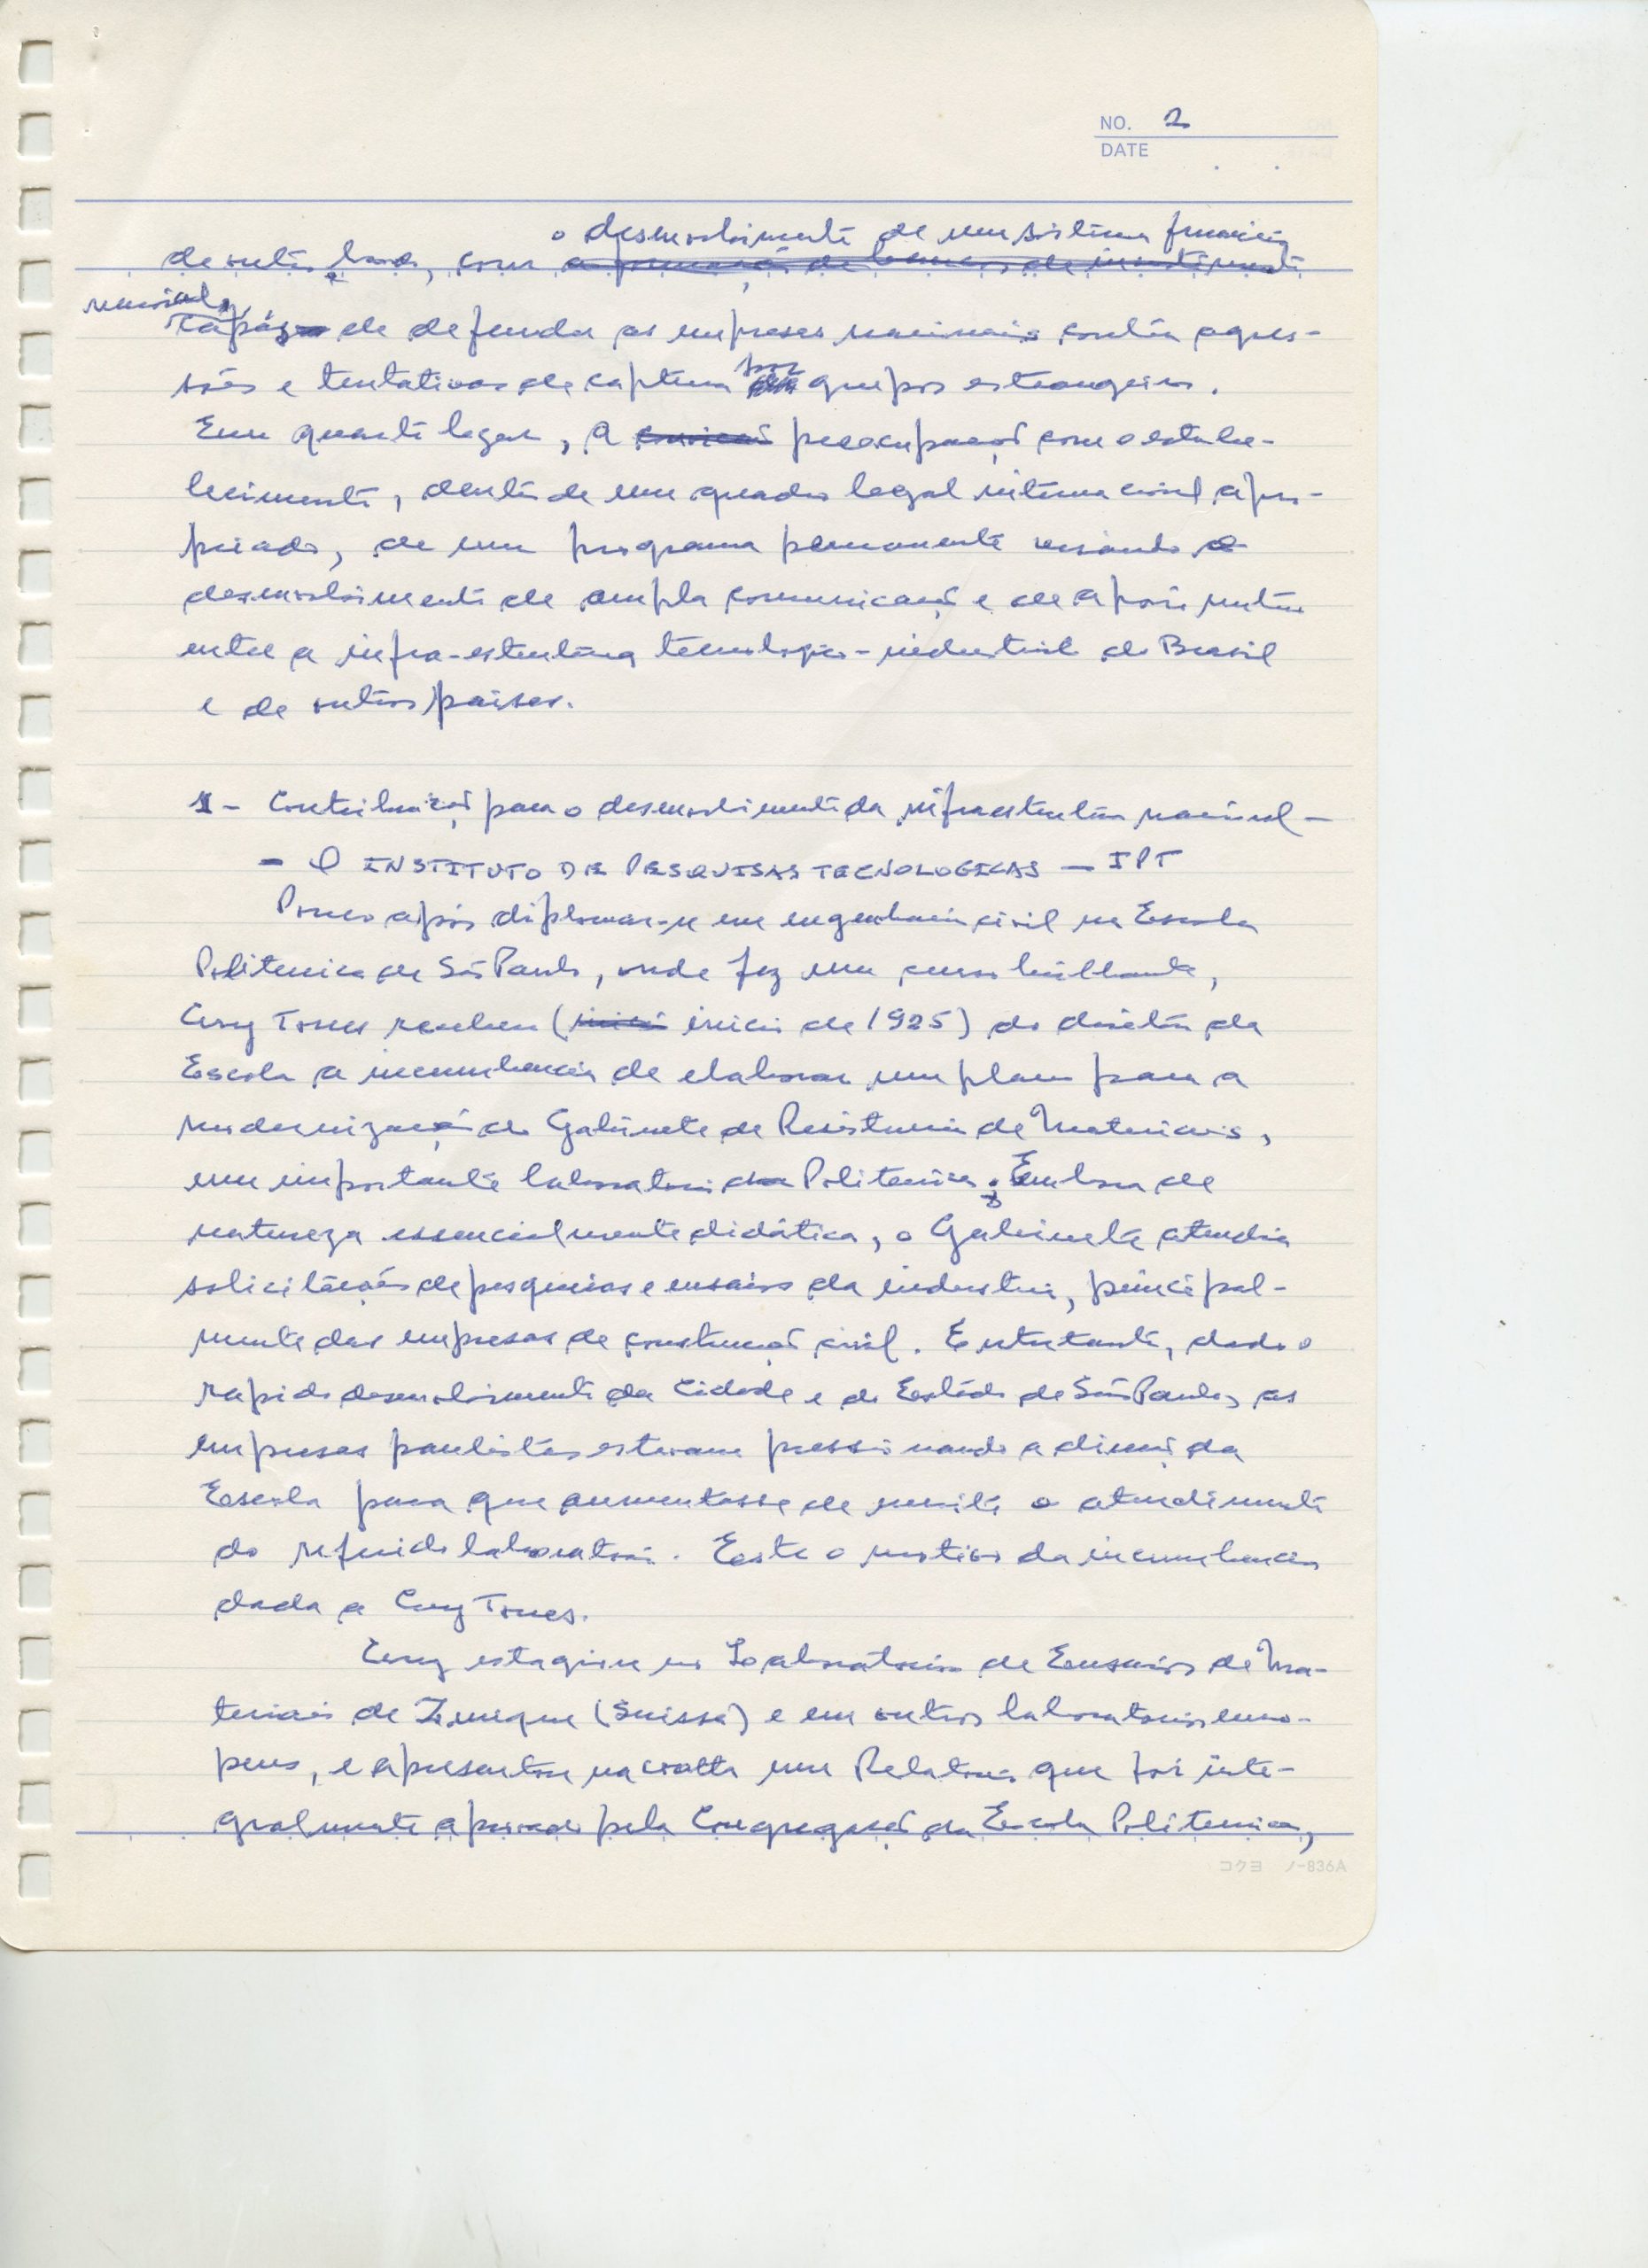 NO. 2
DATE
o desenvolvimento de um sistema financeiro
de outro lado, com a formação de bancos de investimento
nacional,
capaz de defender as empresas nacionais contra agres-
sões e tentativas de captura por grupos estrangeiros.
Em quarto lugar, a preocupação com o estabe-
lecimento, dentro de um quadro legal internacional apro-
priado, de um programa permanente visando o
desenvolvimento de ampla comunicação e de apoio mútuo
entre a infra-estrutura tecnologico-industrial do Brasil
e de outros países.
1 - Contribuição para o desenvolvimento da infraestrutura nacional -
- O INSTITUTO DE PESQUISAS TECNOLOGICAS - IPT
Pouco após diplomar-se em engenharia civil na Escola
Politecnica de São Paulo, onde fez um curso brilhante,
Ary Torres recebeu (inicio de 1925) do diretor da
Escola a incumbencia de elaborar um plano para a
modernização do Gabinete de Resistencia de Materiais,
um importante laboratorio da Politecnica. Embora de
natureza essencialmente didática, o Gabinete atendia
solicitações de pesquisas e ensaios da industria, principal-
mente das empresas de construção civil. Entretanto, dado o
rapido desenvolvimento da Cidade e do Estado de São Paulo, as
empresas paulistas estavam pressionando a direção da
Escola para que aumentasse de muito o atendimento
do referido laboratorio. Este o motivo da incumbencia
dada a Ary Torres.
Ary estagiou no Laboratorio de Ensaios de Ma-
teriais de Zurique (Suissa) e em outros laboratorios euro-
peus, e apresentou na volta um Relatorio que foi inte-
gralmente aprovado pela Congregação da Escola Politecnica,
コクヨ ノ-836A